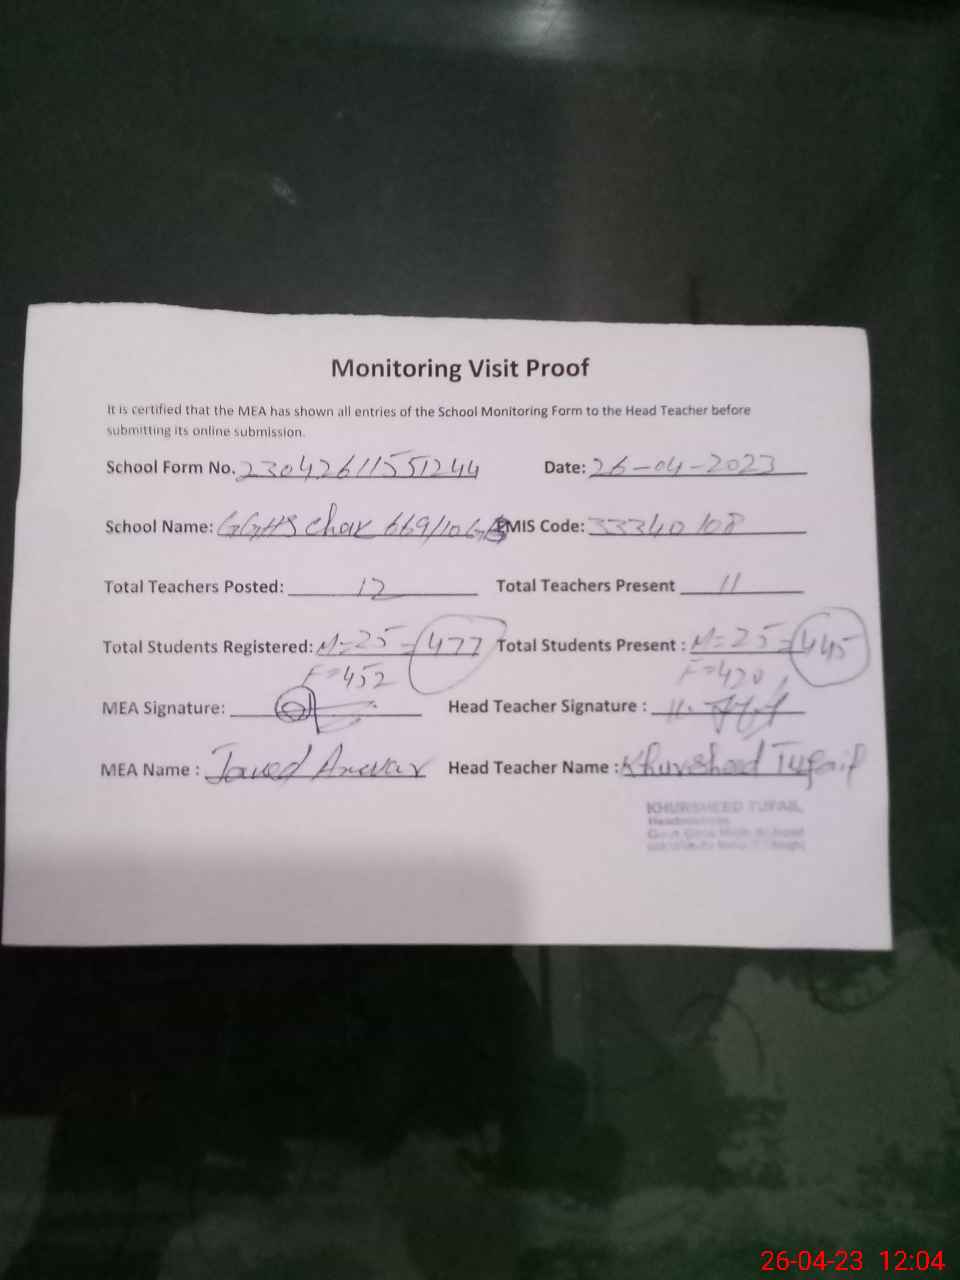 Monitoring Visit Proof
It is certified that the MEA has shown all entries of the School Monitoring Form to the Head Teacher before
submitting its online submission.
School Form No. 230426115551244 Date: 26-04-2023
School Name: GGHS Chak 669/10G EMIS Code: 33340108
Total Teachers Posted: 12 Total Teachers Present 11
Total Students Registered: M=25 = 477 Total Students Present : M=25 = 445
F=452 F=420
MEA Signature: Head Teacher Signature :
MEA Name : Javed Anwar Head Teacher Name : Khursheed Tufail
KHURSHEED TUFAIL
Headmistress
Govt Girls High School
26-04-23 12:04